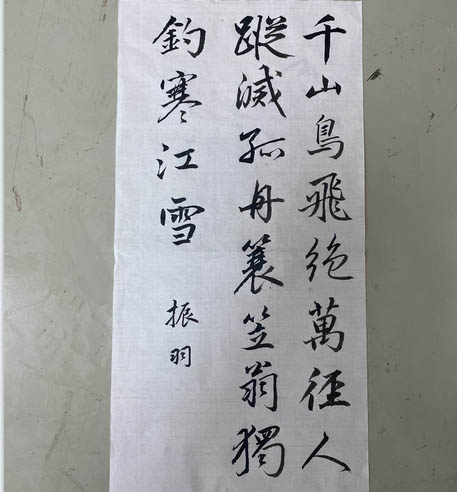 千山鳥飛絶萬徑人
蹤滅孤舟蓑笠翁獨
釣寒江雪
振羽